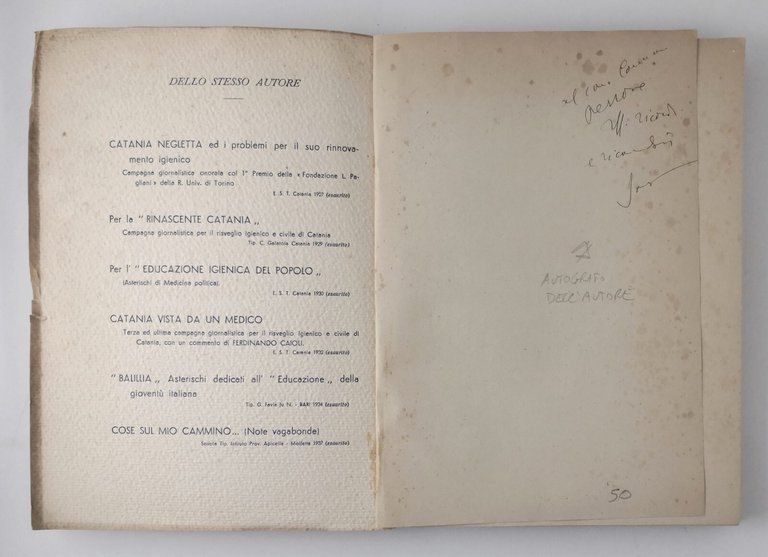 DELLO STESSO AUTORE
CATANIA NEGLETTA ed i problemi per il suo rinnova-
mento igienico
Campagna giornalistica onorata col 1° Premio della « Fondazione L. Pa-
gliani » della R. Univ. di Torino
E. S. T. Catania 1927 (esaurito)
Per la " RINASCENTE CATANIA „
Campagna giornalistica per il risveglio igienico e civile di Catania
Tip. C. Galatola Catania 1929 (esaurito)
Per l' " EDUCAZIONE IGIENICA DEL POPOLO „
(Asterischi di Medicina politica).
E. S. T. Catania 1930 (esaurito)
CATANIA VISTA DA UN MEDICO
Terza ed ultima campagna giornalistica per il risveglio igienico e civile di
Catania, con un commento di FERDINANDO CAIOLI.
E. S. T. Catania 1932 (esaurito)
" BALILLIA „ Asterischi dedicati all' " Educazione „ della
gioventù italiana
Tip. G. Favia fu N. - BARI 1934 (esaurito)
COSE SUL MIO CAMMINO... (Note vagabonde)
Scuola Tip. Istituto Prov. Apicella - Molfetta 1937 (esaurito)
AUTOGRAFO
DELL'AUTORE
50